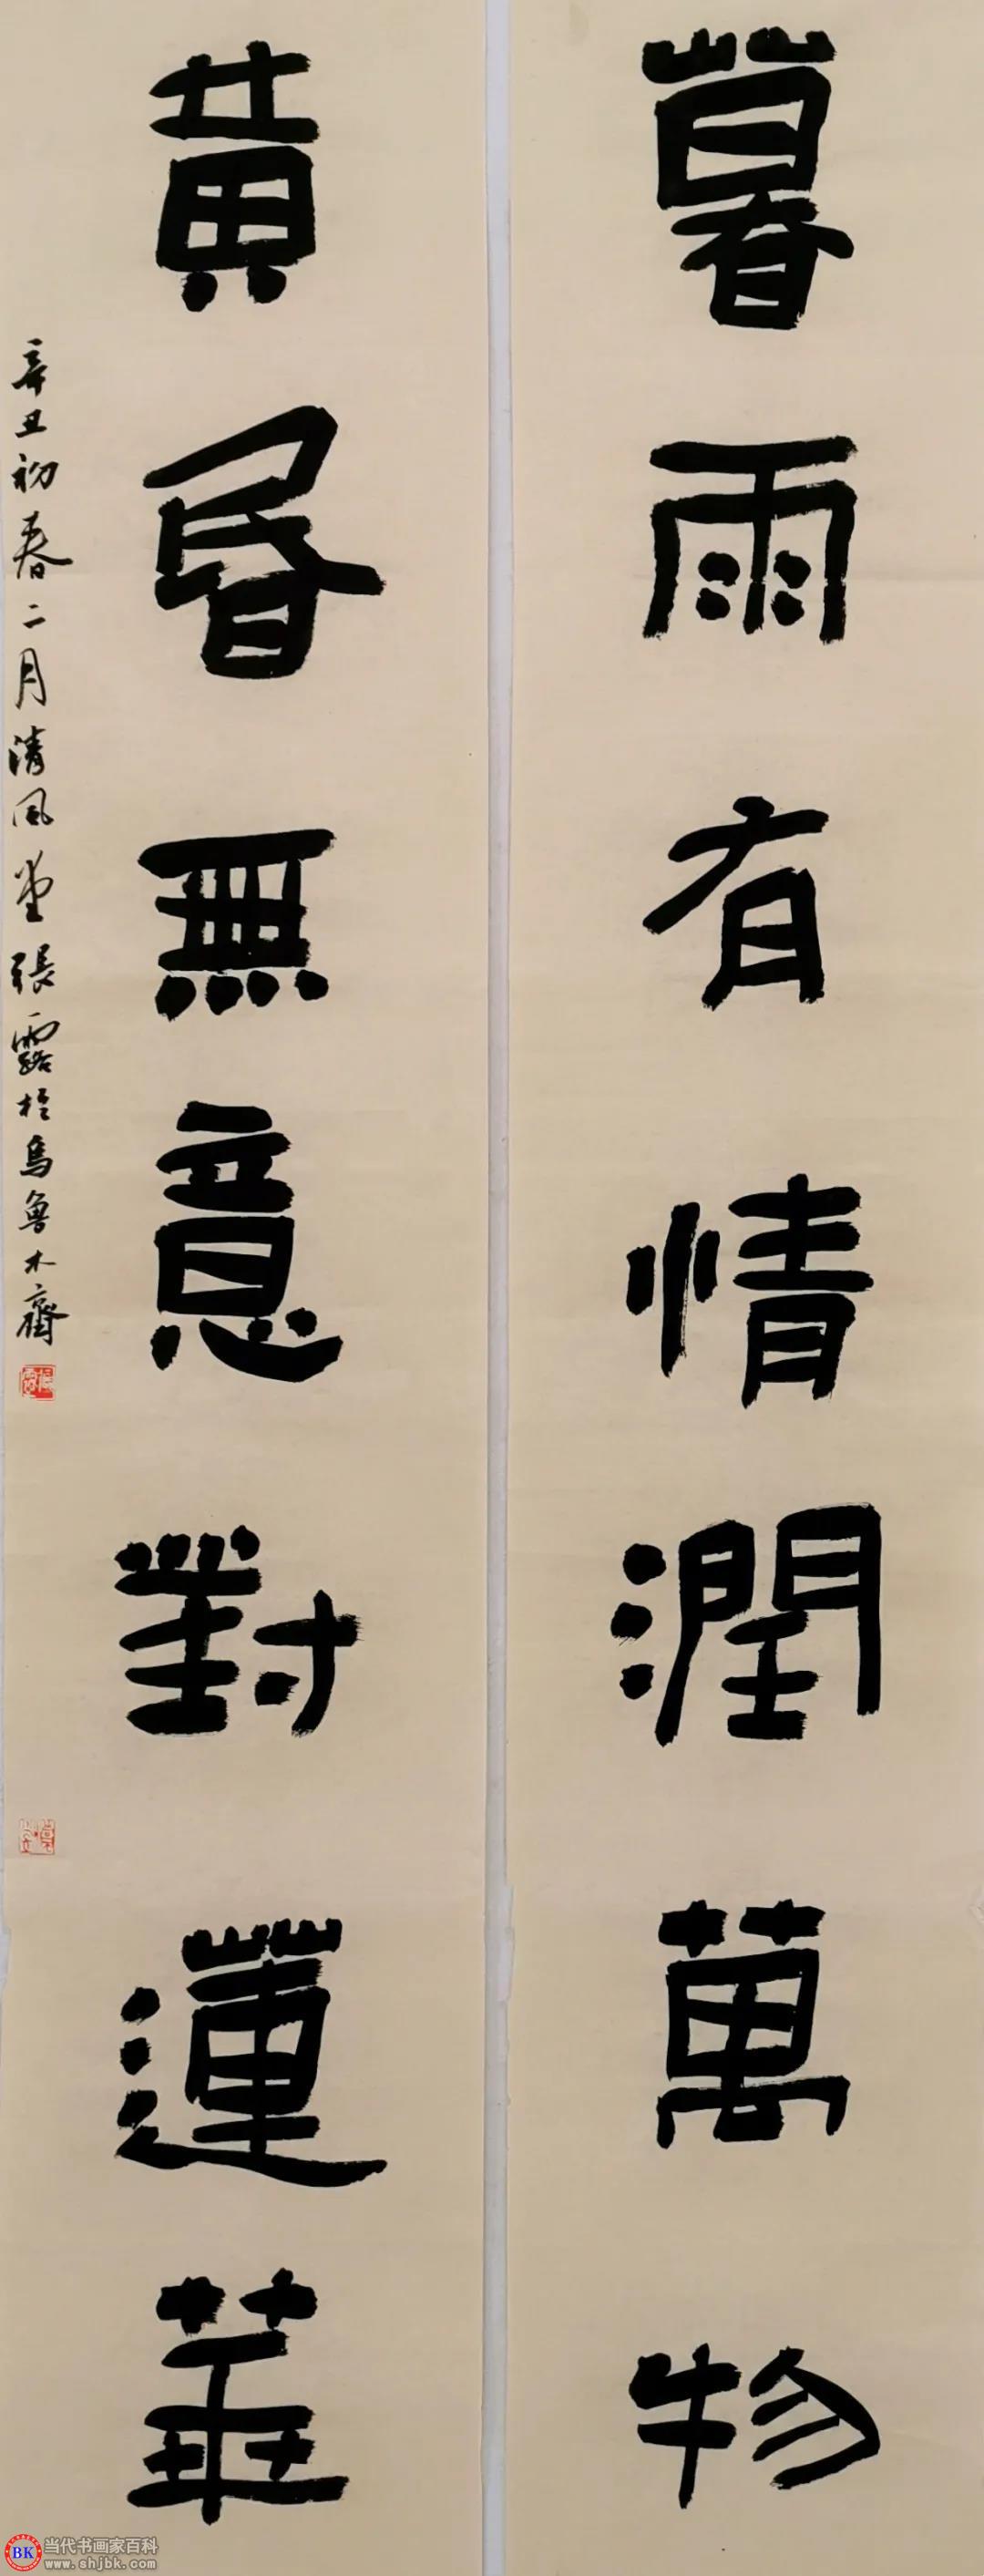 暮雨有情潤萬物
黄昏無意對蓮華
辛丑初春二月清風堂張露於烏魯木齋
張露
BK
当代书画家百科
www.shjbk.com